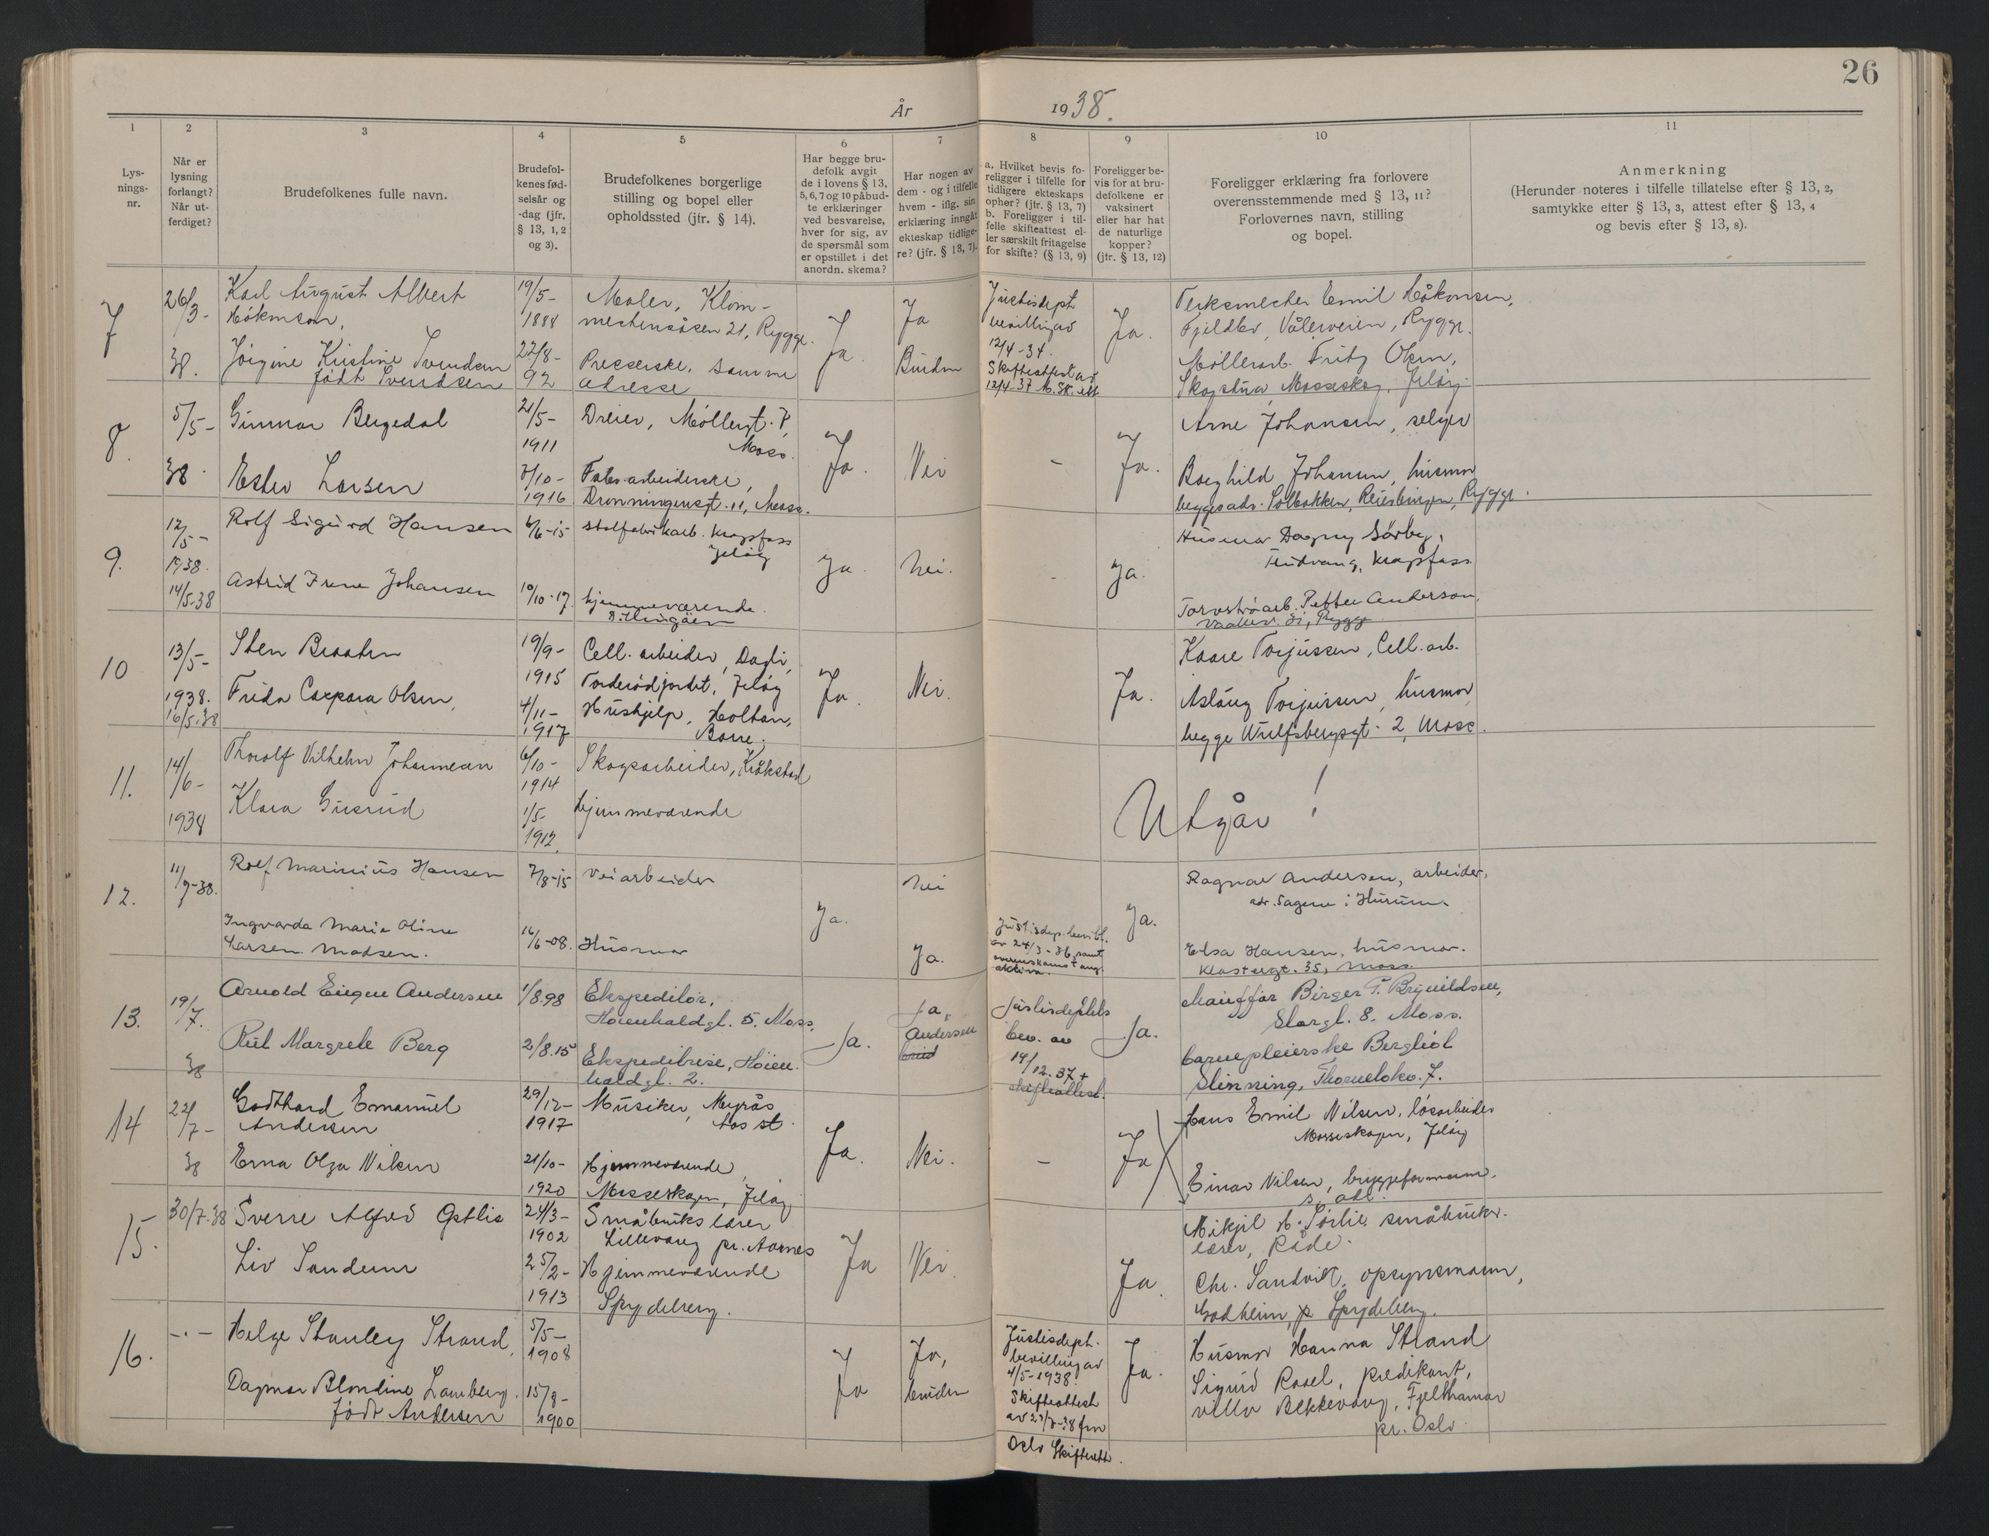 26
År 1938.
1 2 3 4 5 6 7 8 9 10 11
Lys-
nings-
nr.
Når er
lysning
forlangt?
Når ut-
ferdiget?
Brudefolkenes fulle navn.
Brudefol-
kenes fød-
selsår og
-dag (jfr.
§ 13, 1, 2
og 3).
Brudefolkenes borgerlige
stilling og bopel eller
opholdssted (jfr. § 14).
Har begge bru-
defolk avgit
de i lovens § 13,
5, 6, 7 og 10 påbud-
te erklæringer
ved besvarelse,
hver for sig, av
de spørsmål som
er opstillet i det
anordn. skema?
Har nogen av
dem - og i tilfelle
hvem - iflg. sin
erklæring inngått
ekteskap tidlige-
re? (jfr. § 13, 7).
a. Hvilket bevis fo-
religger i tilfelle for
tidligere ekteskaps
opher? (jfr. § 13, 7)
b. Foreligger i til-
felle skifteattest el-
ler særskilt fritagelse
for skifte? (§ 13, 9)
Foreligger be-
vis for at bru-
defolkene er
vaksinert
eller har hat
de naturlige
kopper?
(jtr. § 13, 12)
Foreligger erklæring fra forlovere
overensstemmende med § 13, 11?
Forlovernes navn, stilling
og bopel.
Anmerkning
(Herunder noteres i tilfelle tillatelse efter § 13, 2,
samtykke efter § 13, 3, attest efter § 13, 4
og bevis efter § 13, 8).
7
26/3-
38.
Karl August Albert
Håkonson,
Jörgine Kristine Svendsen
født Svendsen
19/5-
1888
22/8-
92
Maler, Klom-
mestensåsen 21, Rygge.
Presserske, samme
adresse
Ja.
Ja
Bruden
Justisdept
bevilling av
12/4-34.
Skifteattest av
12/4-37
Ja.
Emil Håkonsen,
Fjeldbo, Vålerveien, Rygge.
Möllerarb. Fritz Olsen,
Skogstua, Mosseskog, Jeløy.
8.
5/5-
38.
Gunnar Bergedal
Ester Larsen
21/5-
1911
7/10-
1916
Dreier, Møllergt. 7,
Moss.
Fabr. arbeiderske,
Dronningensgt. 11, Moss.
Ja.
Nei
-
Ja.
Arne Johansen, selger
Borghild Johansen, husmor
begges adr. Solbakken, Rygge.
9.
12/5-
1938.
14/5-38
Rolf Sigurd Hansen
Astrid Irene Johansen
6/6-15
10/10-17.
Stolfabrikarb. Krapfoss
Jeløy
hjemmeværende.
Dillingöen
Ja.
Nei.
-
Ja.
Husmor Dagny Sørby,
Krapfoss.
Torvströarb. Petter Anderson,
Rygge
10
13/5-
1938.
16/5.38
Sten Braaten
Frida Caspara Olsen,
19/9-
1915
4/11-
1917
Cell. arbeider, Dagli,
Torderödjordet, Jeløy
Hushjelp, Holtan,
Borre.
Ja.
Nei.
Ja.
Kaare Torjussen, Cell. arb.
Aslaug Torjussen, husmor
begge Wulfsbergsgt. 2, Moss.
11.
14/6-
1938
Thorolf Vilhelm Johannesen
Klara Gusrud
6/10-
1914
1/5-
1912.
Skogsarbeider, Kråkstad
hjemmeværende
Utgår!
12.
11/7-38.
Rolf Marinius Hansen
Ingvarda Marie Oline
Larsen Madsen.
7/8-15
16/6-08.
Veiarbeider
Husmor
Ja.
Nei
Ja.
Justisdep. bevill.
av 24/3-36 samt
Ja.
Ragnar Andersen, arbeider,
adr. Sagene i Hurum.
Elsa Hansen, husmor.
Klostergt. 35, Moss.
13.
19/7.
38
Arnold Eugen Andersen
Rut Margrete Berg
1/8.98
2/8.15
Ekspeditör,
Höienhaldgt. 5. Moss.
Ekspeditrise, Höien-
haldgt. 2.
Ja.
Ja,
Andersen
Justisdeptets
bev. av
14/12.37 +
skifteattest.
Ja.
Chauffør Birger T. Brynildsen,
Storgt. 8. Moss.
barnepleierske Bergliot
Slinning, Thorneløkv. 7.
14
22/7-
38
Godthard Emanuel
Andersen
Erna Olga Nilsen
29/12-
1917
21/10-
1920
Musiker, Myrås
Aas st.
Hjemmeværende,
Mosseskogen, Jeløy
Ja.
Nei.
-
Ja
Hans Emil Nilsen, løsarbeider
Mosseskogen, Jeløy
Einar Nilsen, bryggeformann.
s. adr.
15.
30/7.38
Sverre Alfred Østlie
Liv Sandum
24/3-
1902
25/2-
1913
Småbrukslærer
Lillevang pr. Aarnes
Hjemmeværende
Spydeberg.
Ja
Nei.
Ja.
Mikjel H. Sørlie småbruks-
lærer, Råde.
Chr. Sandvik, opsynsmann,
Godheim, p. Spydeberg.
16.
-.-
Helge Stanley Strand,
Dagmar Blondine Lamberg.
født Andersen
5/5-
1908
15/8-
1900
Ja
Ja,
bruden
Justisdept.
bevilling av
4/5-1938.
Skifteattest
av 23/7-38 fra
Oslo Skifterett.
Ja.
Husmor Hanna Strand
Sigurd Rosel, predikant,
villa Bekkevang, Fjellhamar
pr. Oslo.